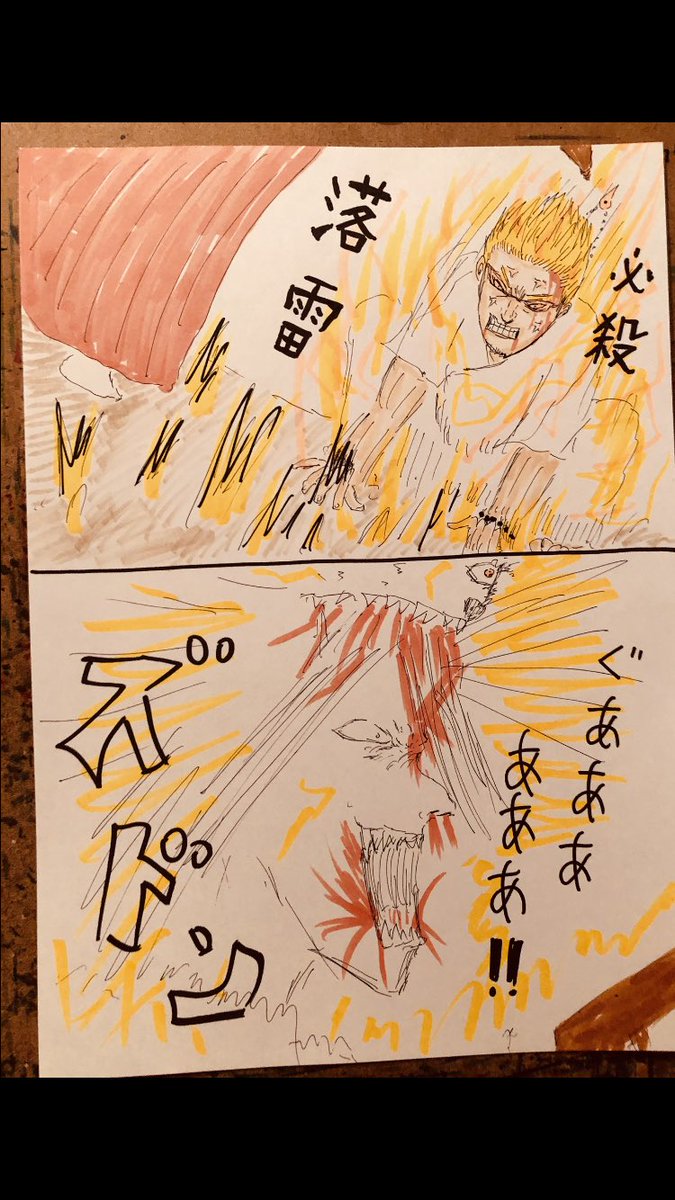 必殺
落雷
ぐあああ
あああ!!
ズドン